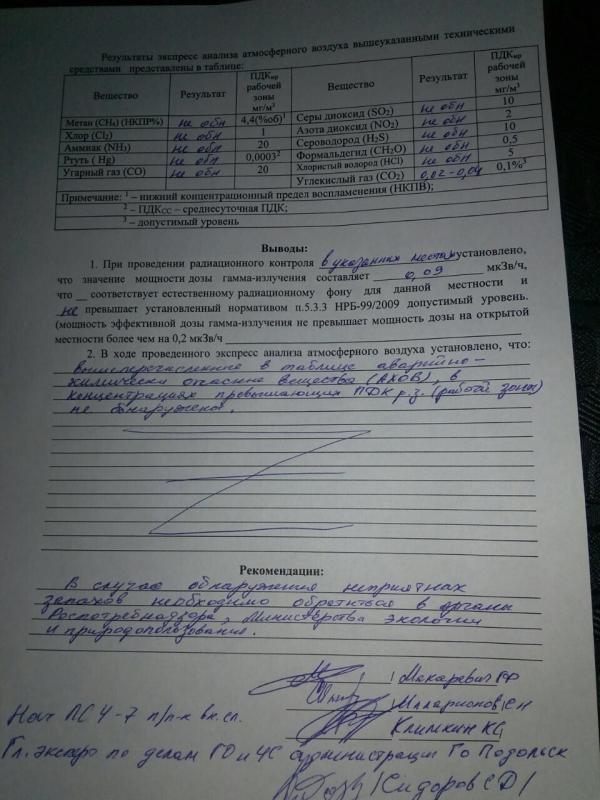 Результаты экспресс анализа атмосферного воздуха вышеуказанными техническими
средствами представлены в таблице:
Вещество Результат ПДКмр рабочей зоны мг/м³ Вещество Результат ПДКмр рабочей зоны мг/м³
Метан (CH₄) (НКПР%) не обн 4,4(%об)¹ Серы диоксид (SO₂) не обн 10
Хлор (Cl₂) не обн 1 Азота диоксид (NO₂) не обн 2
Аммиак (NH₃) не обн 20 Сероводород (H₂S) не обн 10
Ртуть ( Hg) не обн 0,0003² Формальдегид (CH₂O) не обн 0,5
Угарный газ (CO) не обн 20 Хлористый водород (HCl) не обн 5
Углекислый газ (CO₂) 0,02-0,04 0,1%³
Примечание: ¹ – нижний концентрационный предел воспламенения (НКПВ);
² – ПДКСС – среднесуточная ПДК;
³ – допустимый уровень
Выводы:
1. При проведении радиационного контроля в указанных местах установлено,
что значение мощности дозы гамма-излучения составляет 0,09 мкЗв/ч,
что __ соответствует естественному радиационному фону для данной местности и
не превышает установленный нормативом п.5.3.3 НРБ-99/2009 допустимый уровень.
(мощность эффективной дозы гамма-излучения не превышает мощность дозы на открытой
местности более чем на 0,2 мкЗв/ч
2. В ходе проведенного экспресс анализа атмосферного воздуха установлено, что:
вышеперечисленные в таблице аварийно-
химически опасные вещества (АХОВ), в
концентрациях превышающих ПДК р.з. (рабочей зоны)
не обнаружено.
Рекомендации:
В случае обнаружения неприятных
запахов необходимо обратиться в органы
Роспотребнадзора, Министерства экологии
и природопользования.
/ Макаревич
Илларионов
Климкин
Нач ПСЧ-7 п/п-к вн.сл.
Гл. эксперт по делам ГО и ЧС администрации Го Подольск
/Сидоров С Д/